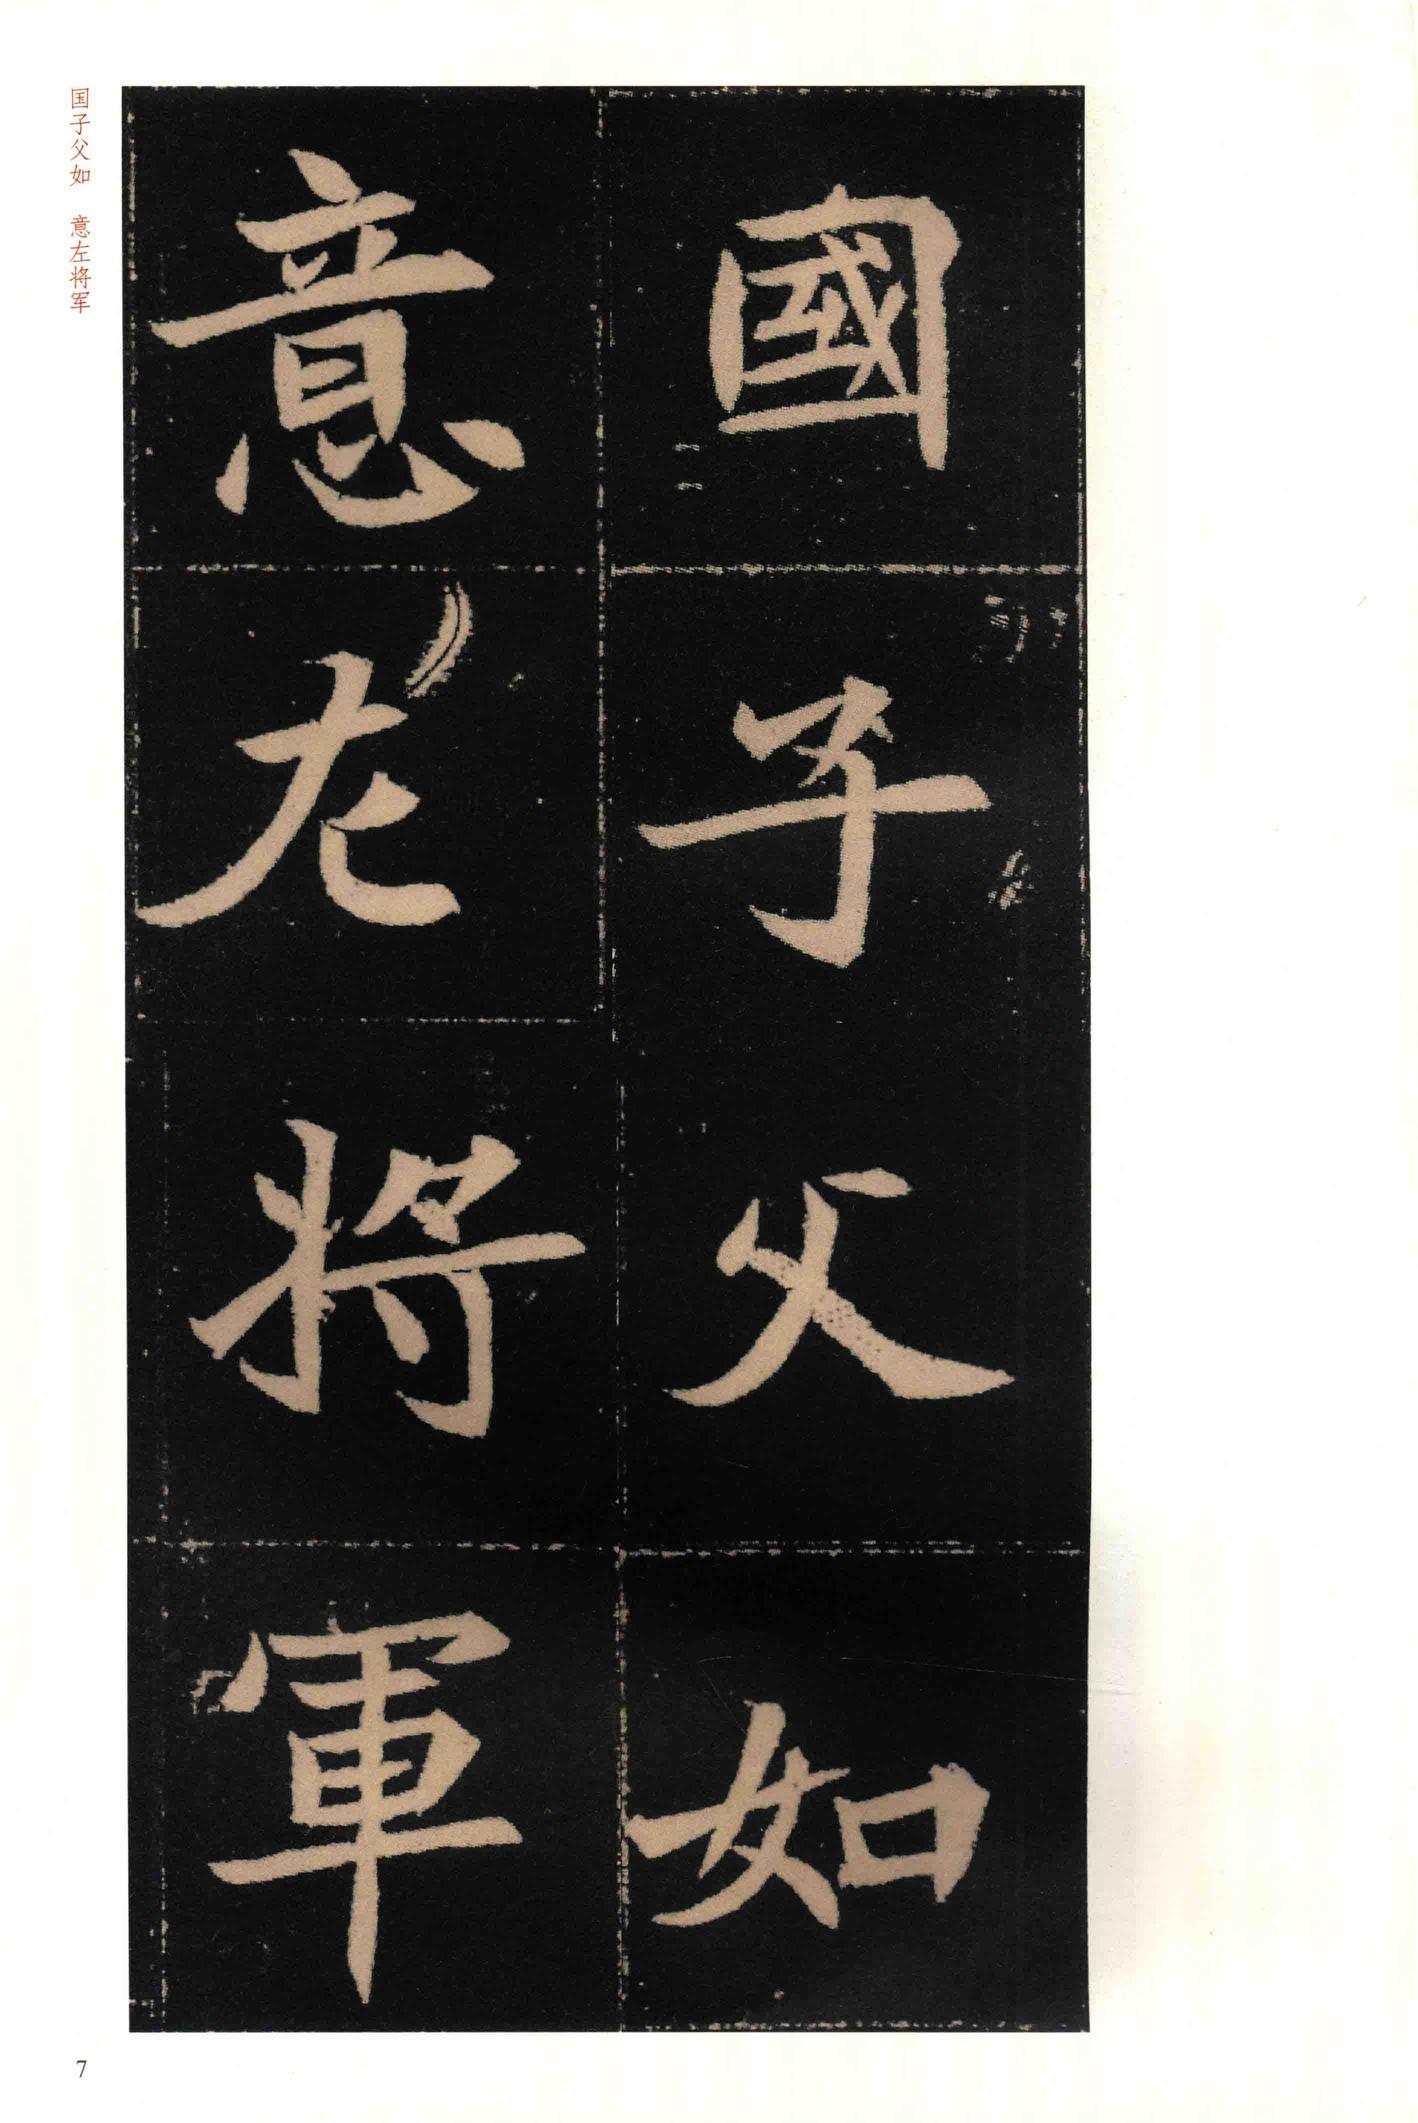 國子父如
意左將軍
国子父如　意左将军
7